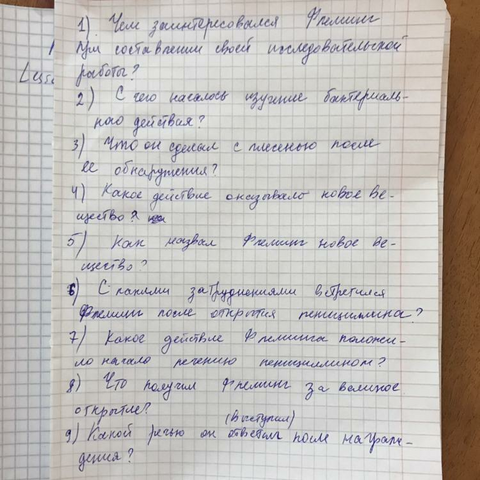 1) Чем заинтересовался Флеминг
при составлении своей исследовательской
работы?
2) С чего началось изучение бактериаль-
ного действия?
3) Что он сделал с плесенью после
ее обнаружения?
4) Какое действие оказывало новое ве-
щество?
5) Как назвал Флеминг новое ве-
щество?
6) С какими затруднениями встретился
Флеминг после открытия пенициллина?
7) Какое действие Флеминга положи-
ло начало лечению пенициллином?
8) Что получил Флеминг за великое
открытие?
(выступил)
9) Какой речью он ответил после награж-
дения?